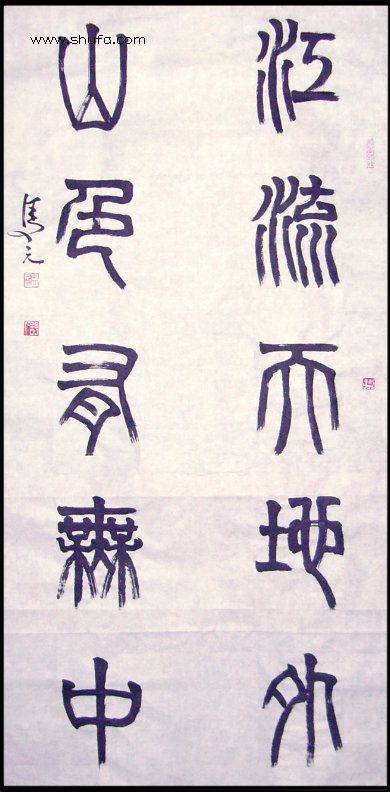 www.shufa.com
江流天地外
山色有無中